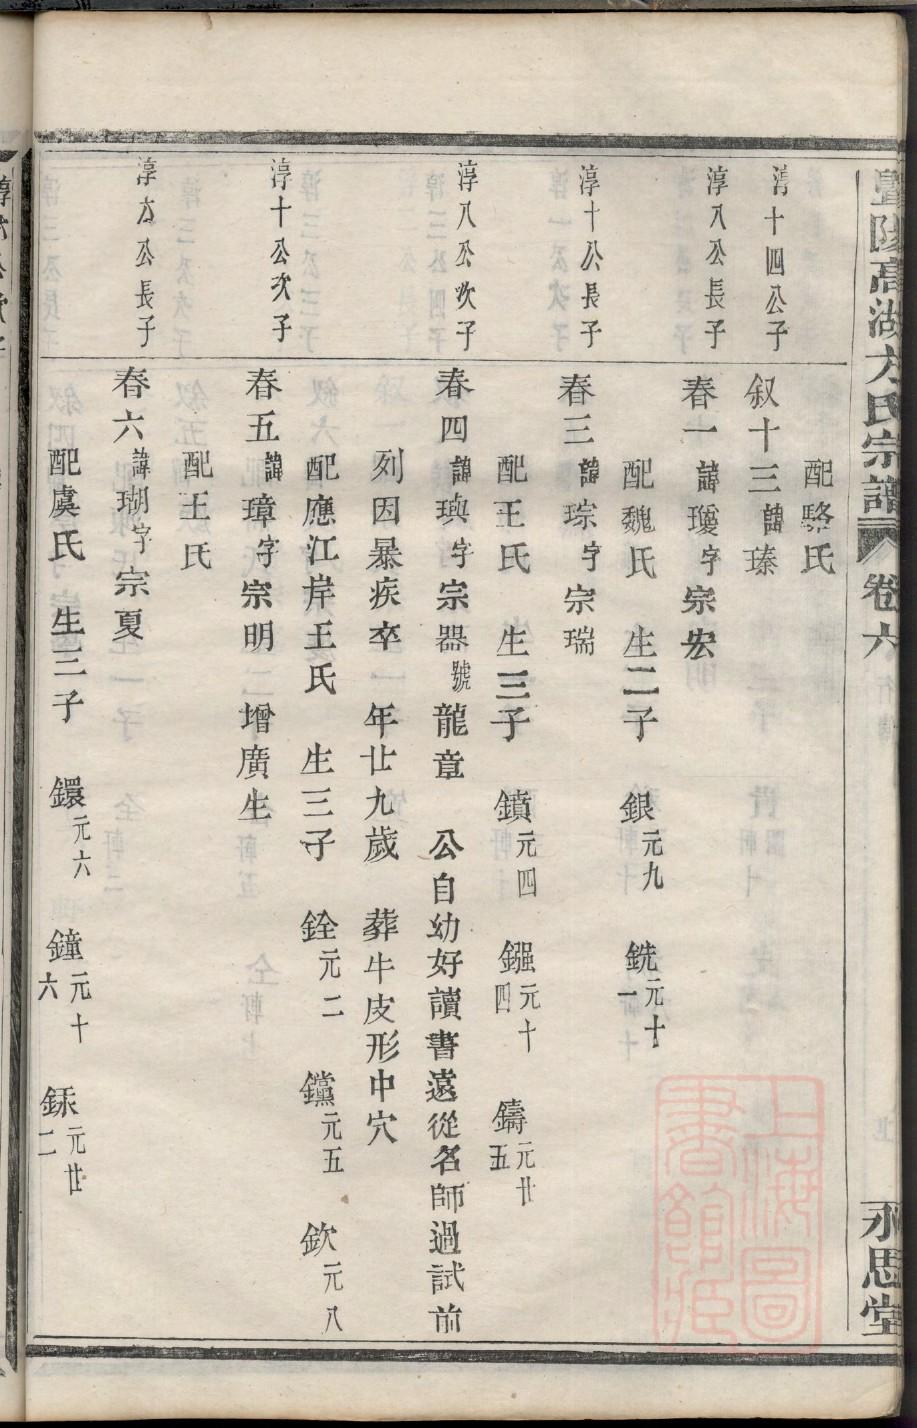 暨陽高湖方氏宗譜 卷六 永思堂
配駱氏
淳十四公子 叙十三諱瑧
淳八公長子 春一諱瓊字宗宏
配魏氏 生二子 銀元九 銑元十一
淳十公長子 春三諱琮字宗瑞
配王氏 生三子 鐨元四 鏂元十四 鑄元廿五
淳八公次子 春四諱璵字宗器號龍章 公自幼好讀書遠從名師過試前
列因暴疾卒 年廿九歲 葬牛皮形中穴
配應江岸王氏 生三子 銓元二 钂元五 欽元八
淳十公次子 春五諱璋字宗明 增廣生
配王氏
淳六公長子 春六諱瑚字宗夏
配虞氏 生三子 鐶元六 鐘元十六 銾元廿二
上海圖書館藏